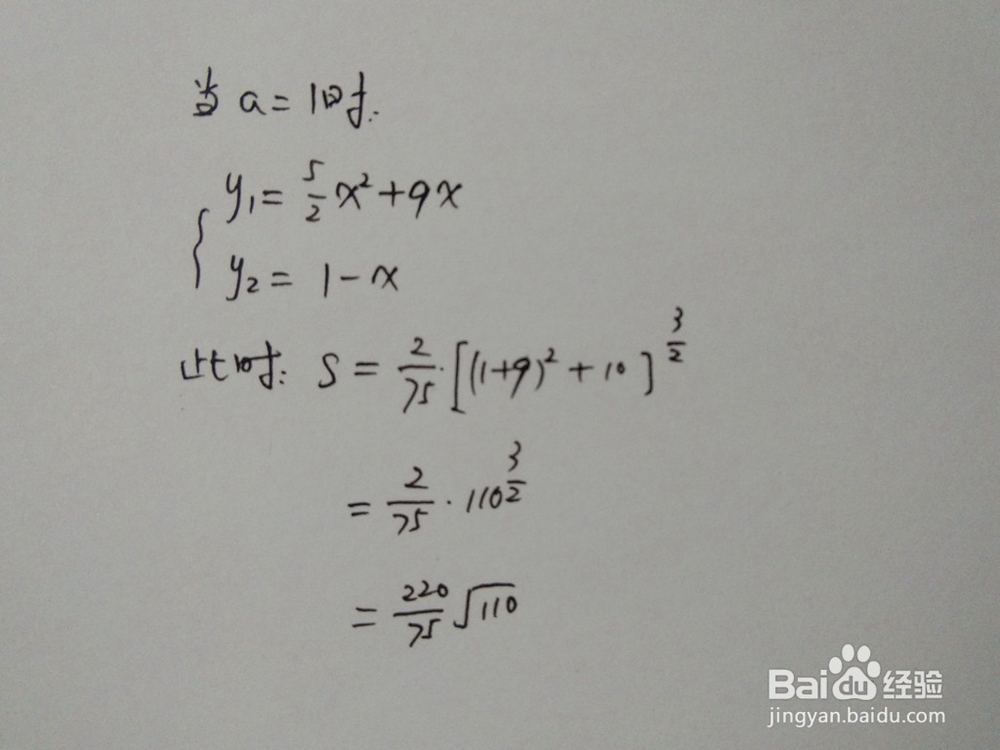 当 a = 1时.
y₁ = 5/2 x² + 9x
y₂ = 1 - x
此时: S = 2/75 · [(1+9)² + 10]^(3/2)
= 2/75 · 110^(3/2)
= 220/75 √110
Baidu 经验
jingyan.baidu.com